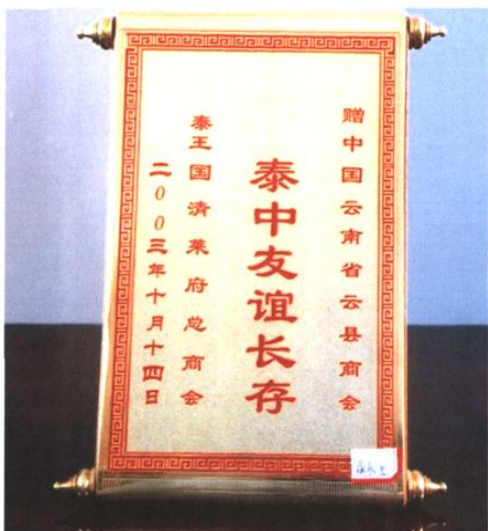 赠中国云南省云县商会
泰中友谊长存
泰王国清莱府总商会
二00三年十月十四日